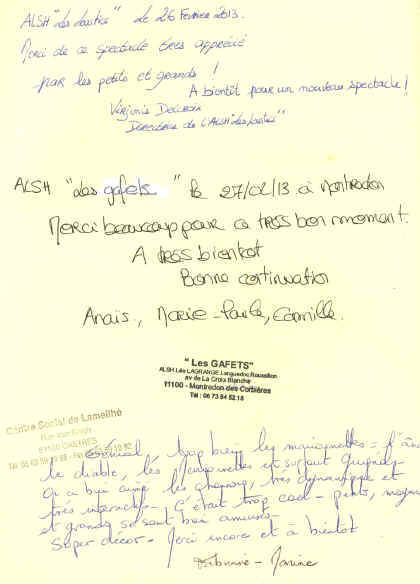 ALSH "les loutics" le 26 Février 2013.
Merci de ce spectacle très apprécié
par les petits et grands !
A bientôt pour un nouveau spectacle !
Virginie
Directrice de l'ALSH
ALSH "les gafets" le 27/02/13 à Montredon
Merci beaucoup pour ce très bon moment.
A très bientôt
Bonne continuation
Anaïs, Marie-Paule, Camille.
" Les GAFETS"
ALSH Léo LAGRANGE Languedoc Roussillon
av de La Croix Blanche
11100 - Montredon des Corbières
Tél : 06 73 84 52 18
Centre Social de Lameilhé
CASTRES
Génial trop bien les marionnettes - l'âne
le diable, les marionnettes et surtout guignol -
On a bien aimé les chansons, très dynamique et
très interactif - C'était trop cool - petits, moyens
et grands se sont bien amusés -
Super décor - Merci encore et à bientôt
- Marine